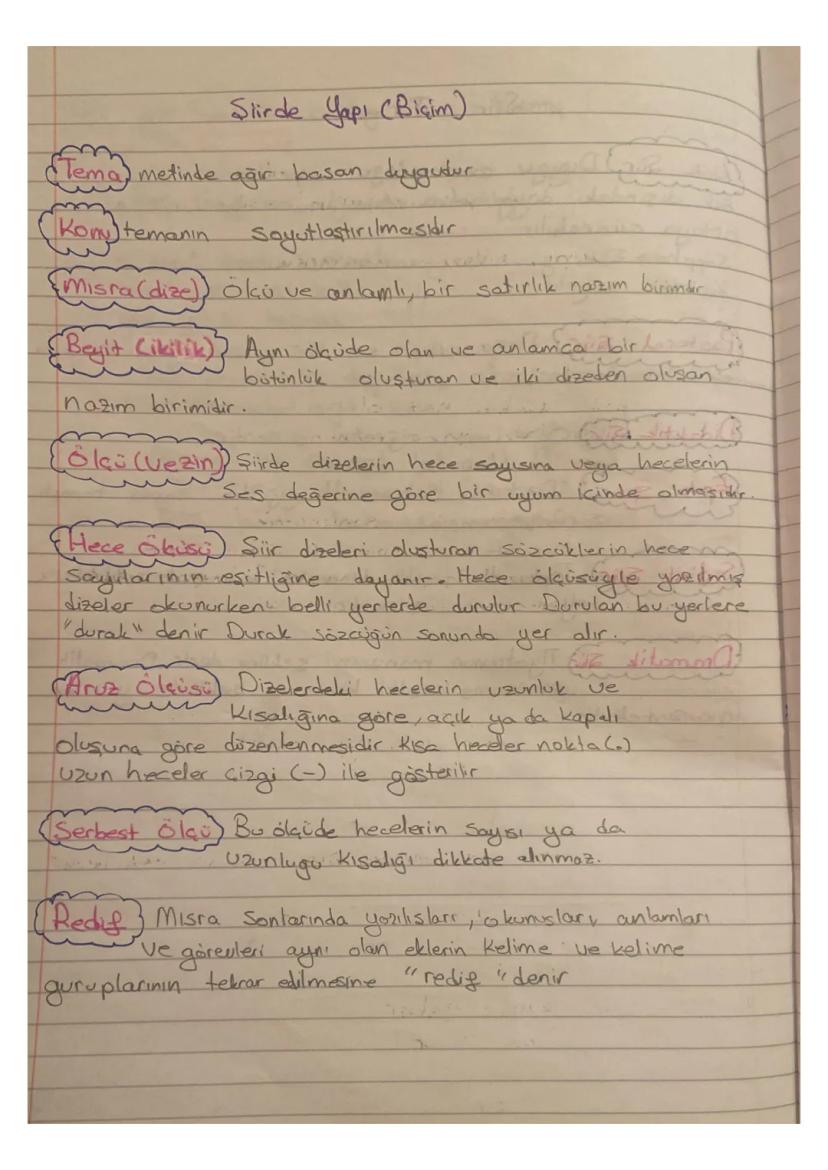 Şiirde Yapı (Biçim)
Tema metinde ağır basan duygudur
Konu temanın soyutlaştırılmasıdır
Mısra (dize) Ölçü ve anlamlı, bir satırlık nazım birimdir
Beyit (ikilik) Aynı ölçüde olan ve anlamca bir
bütünlük oluşturan ve iki dizeden oluşan
nazım birimidir.
Ölçü (Vezin) Şiirde dizelerin hece sayısına veya hecelerin
Ses değerine göre bir uyum içinde olmasıdır.
Hece Ölçüsü Şiir dizeleri oluşturan sözcüklerin hece
sayılarının eşitliğine dayanır. Hece ölçüsüyle yazılmış
dizeler okunurken belli yerlerde durulur Durulan bu yerlere
"durak" denir Durak sözcüğün sonunda yer alır.
Aruz Ölçüsü Dizelerdeki hecelerin uzunluk ve
Kısalığına göre, açık ya da kapalı
oluşuna göre düzenlenmesidir Kısa heceler nokta (.)
uzun heceler çizgi (-) ile gösterilir
Serbest Ölçü Bu ölçüde hecelerin sayısı ya da
Uzunlugu Kısalığı dikkate alınmaz.
Redif Mısra Sonlarında yazılısları, okunusları, anlamları
ve görevleri aynı olan eklerin Kelime ve kelime
guruplarının tekrar edilmesine "redif" denir